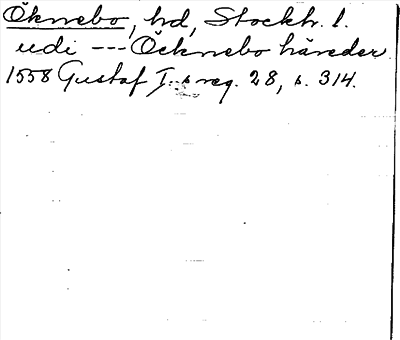 Öknebo, hd, Stockh. l.
udi --- Öcknebo häreder
1558 Gustaf I:s reg. 28, s. 314.